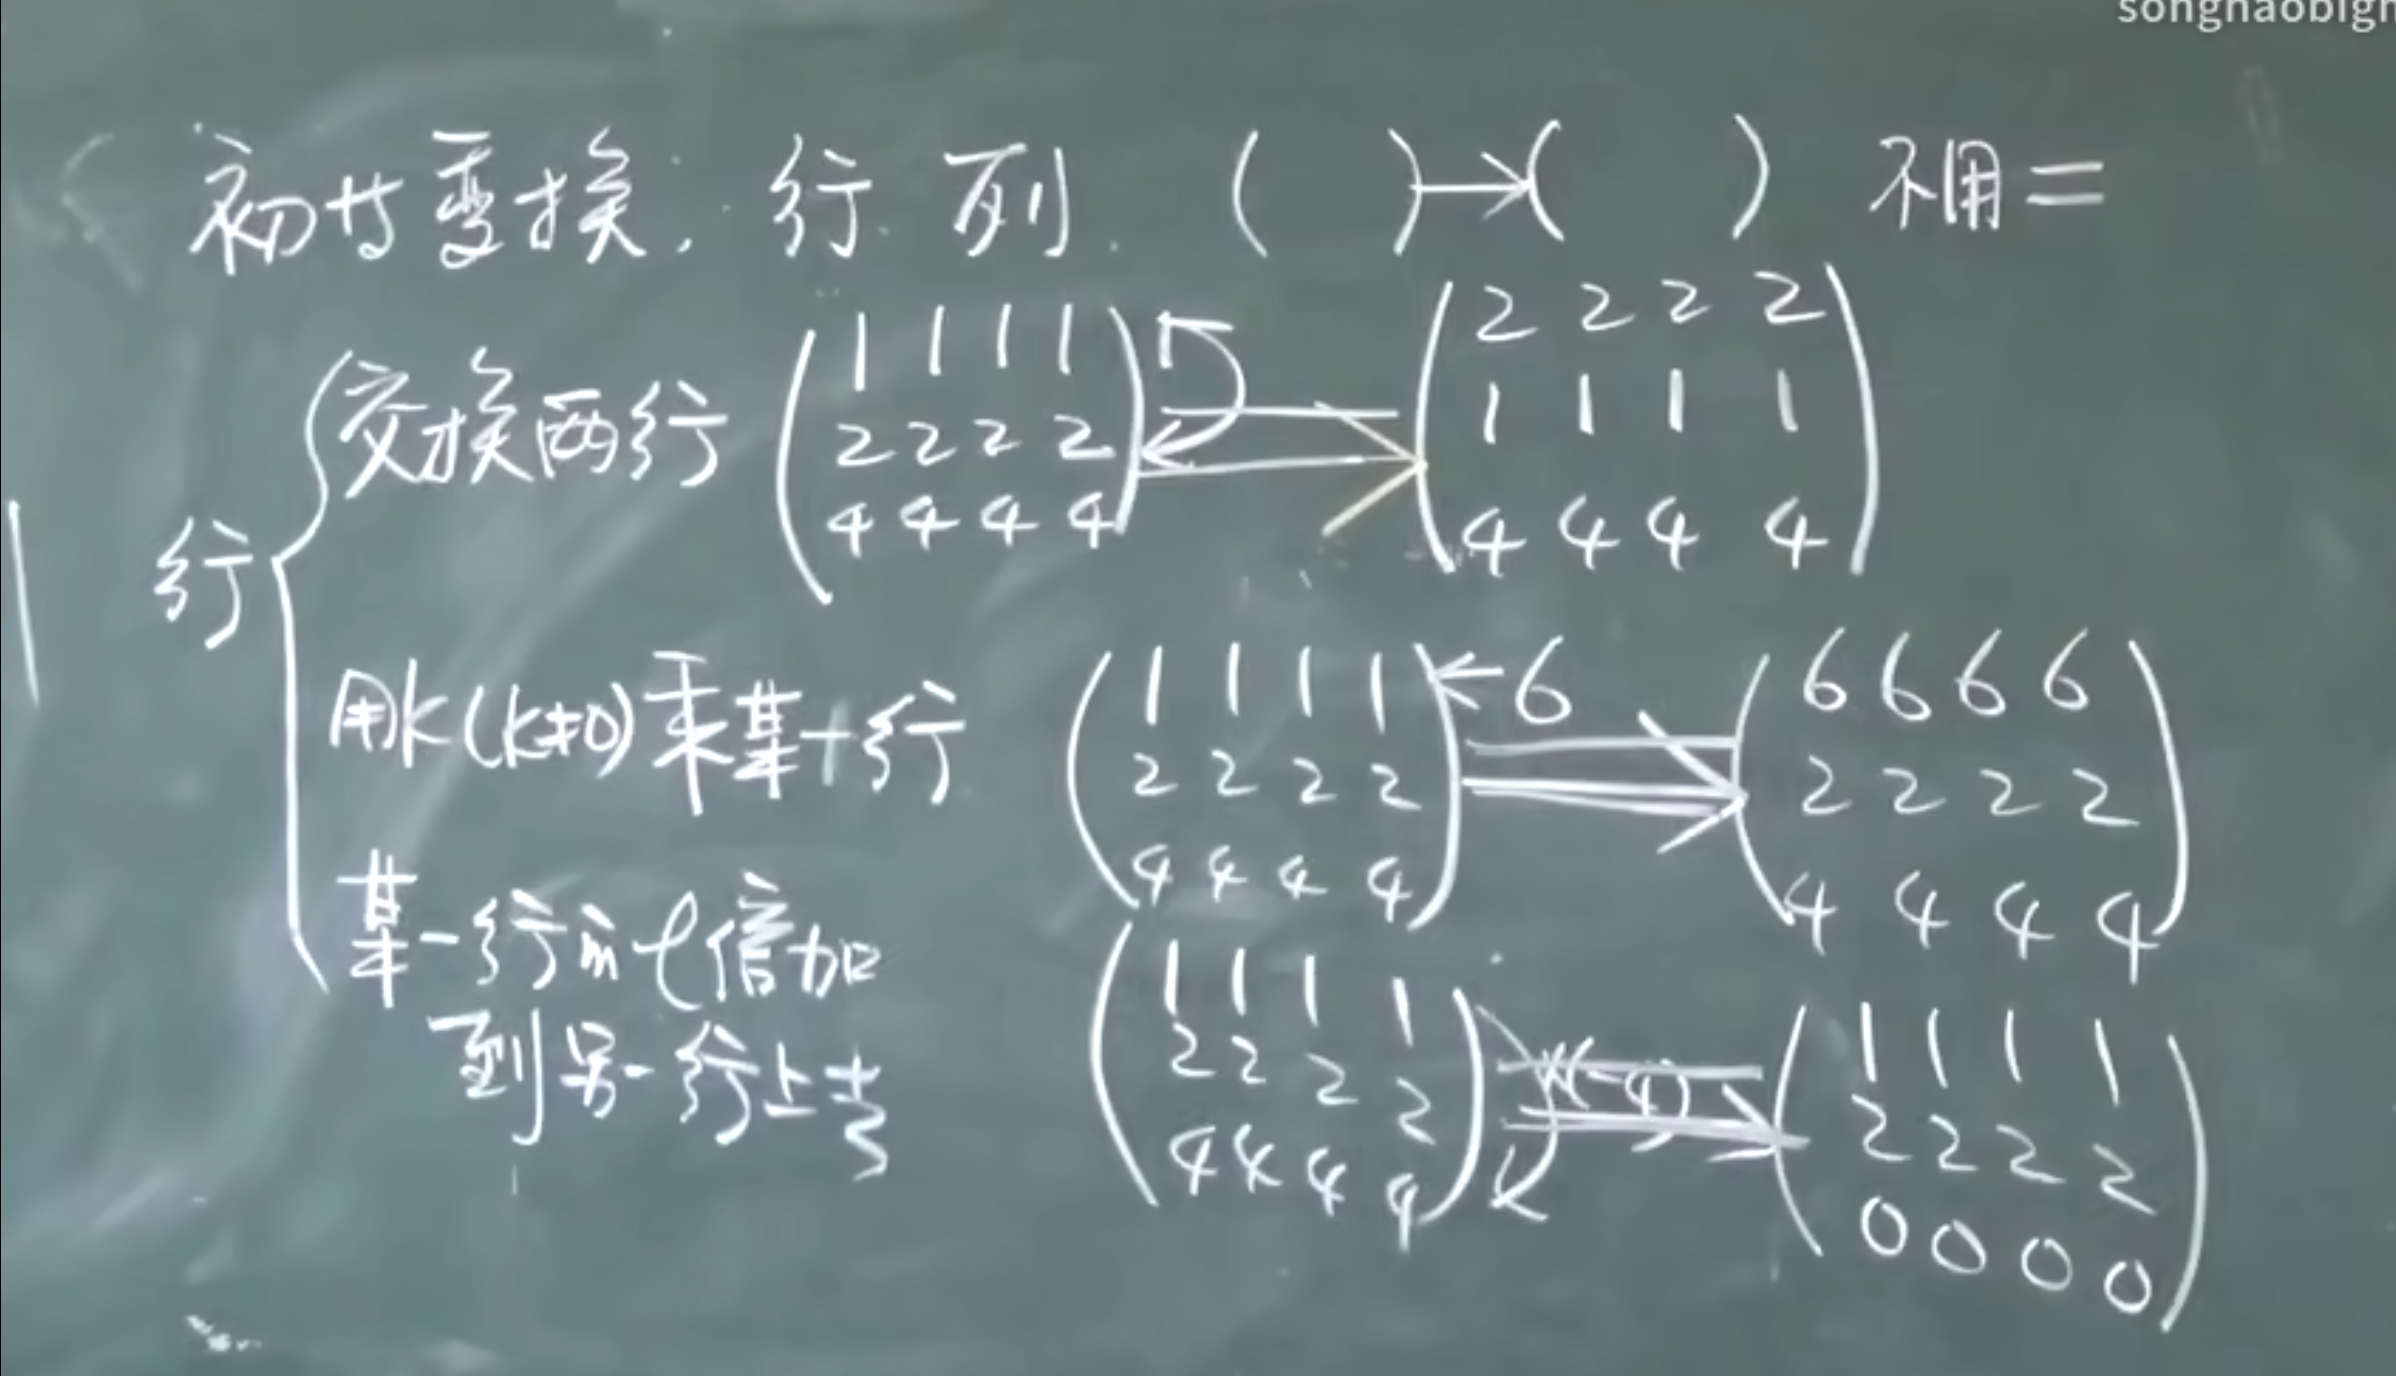 songhaobigh
初等变换. 行. 列. ( )→( ) 不用=
行
交换两行 (1 1 1 1
2 2 2 2
4 4 4 4) ⇒ (2 2 2 2
1 1 1 1
4 4 4 4)
用k(k≠0)乘某一行 (1 1 1 1
2 2 2 2
4 4 4 4) ←6 ⇒ (6 6 6 6
2 2 2 2
4 4 4 4)
某一行的l倍加
到另一行上去
(1 1 1 1
2 2 2 2
4 4 4 4) ×(-4) ⇒ (1 1 1 1
2 2 2 2
0 0 0 0)